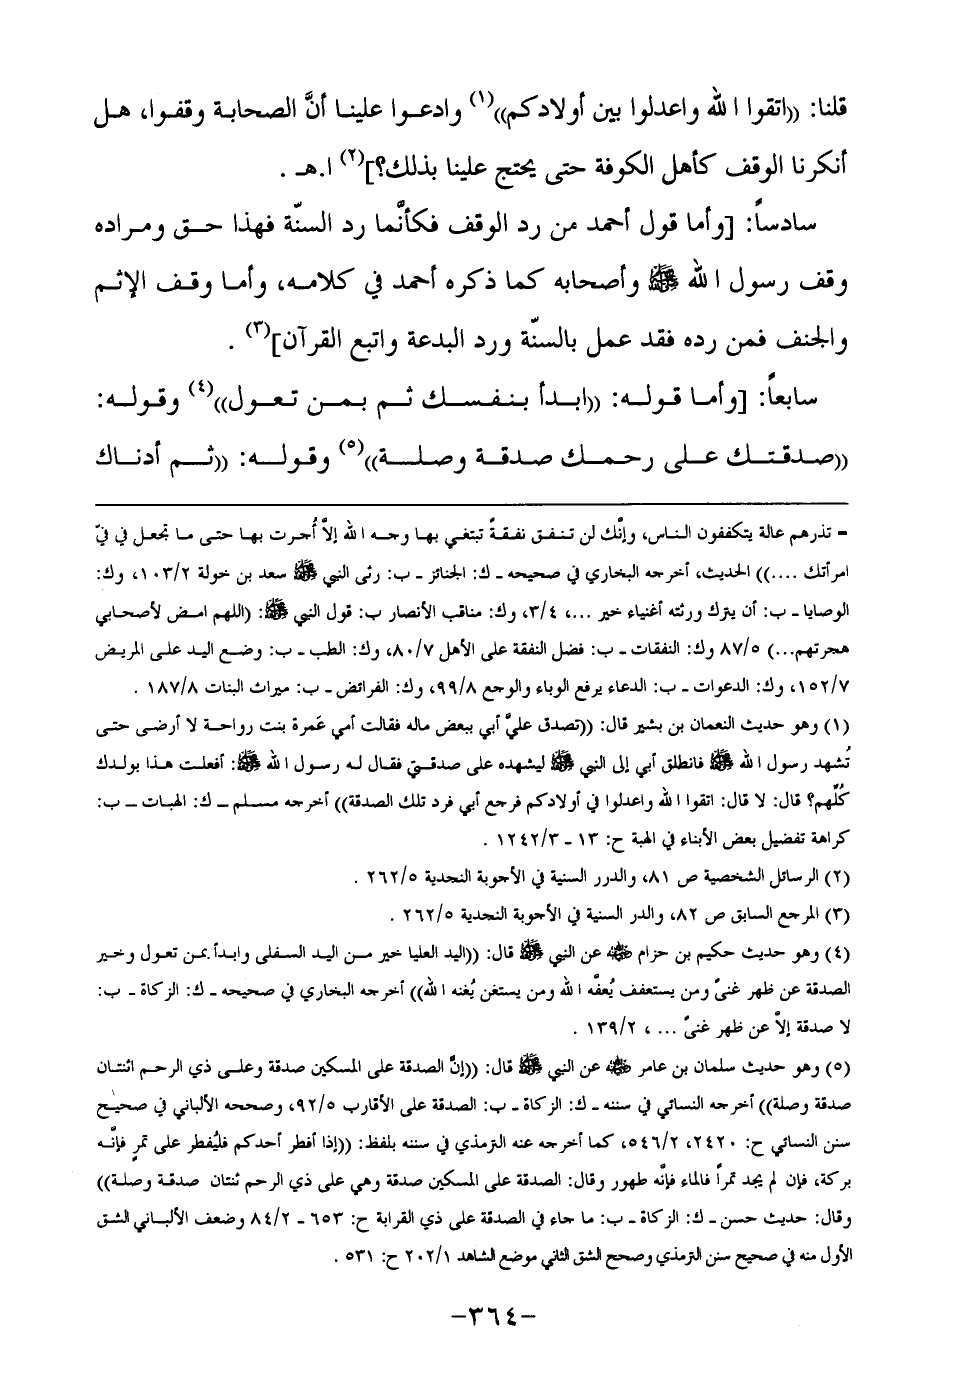 قلنا: ((اتقوا الله واعدلوا بين أولادكم))(١) وادعوا علينا أنَّ الصحابة وقفوا، هل
أنكرنا الوقف كأهل الكوفة حتى يحتج علينا بذلك؟](٢) ا.هـ .
سادساً: [وأما قول أحمد من رد الوقف فكأنَّما رد السنّة فهذا حق ومراده
وقف رسول الله ﷺ وأصحابه كما ذكره أحمد في كلامه، وأما وقف الإثم
والجنف فمن رده فقد عمل بالسنّة ورد البدعة واتبع القرآن](٣) .
سابعاً: [وأما قوله: ((ابدأ بنفسك ثم بمن تعول))(٤) وقوله:
((صدقتك على رحمك صدقة وصلة))(٥) وقوله: ((ثم أدناك
= تذرهم عالة يتكففون الناس، وإنَّك لن تنفق نفقةً تبتغي بها وجه الله إلاَّ أُجرت بها حتى ما تجعل في فيّ
امرأتك ....)) الحديث، أخرجه البخاري في صحيحه ـ ك: الجنائز ـ ب: رثى النبي ﷺ سعد بن خولة ١٠٣/٢، وك:
الوصايا ـ ب: أن يترك ورثته أغنياء خير ...، ٣/٤، وك: مناقب الأنصار ب: قول النبي ﷺ: (اللهم امض لأصحابي
هجرتهم...) ٨٧/٥ وك: النفقات ـ ب: فضل النفقة على الأهل ٨٠/٧، وك: الطب ـ ب: وضع اليد على المريض
١٥٢/٧، وك: الدعوات ـ ب: الدعاء يرفع الوباء والوجع ٩٩/٨، وك: الفرائض ـ ب: ميراث البنات ١٨٧/٨ .
(١) وهو حديث النعمان بن بشير قال: ((تصدق عليَّ أبي ببعض ماله فقالت أمي عَمرة بنت رواحة لا أرضى حتى
تُشهد رسول الله ﷺ فانطلق أبي إلى النبي ﷺ ليشهده على صدقتي فقال له رسول الله ﷺ: أفعلت هذا بولدك
كُلِّهم؟ قال: لا قال: اتقوا الله واعدلوا في أولادكم فرجع أبي فرد تلك الصدقة)) أخرجه مسلم ـ ك: الهبات ـ ب:
كراهة تفضيل بعض الأبناء في الهبة ح: ١٣ ـ ١٢٤٢/٣ .
(٢) الرسائل الشخصية ص ٨١، والدرر السنية في الأجوبة النجدية ٢٦٢/٥ .
(٣) المرجع السابق ص ٨٢، والدر السنية في الأجوبة النجدية ٢٦٢/٥ .
(٤) وهو حديث حكيم بن حزام ﷺ عن النبي ﷺ قال: ((اليد العليا خير من اليد السفلى وابدأ بمن تعول وخير
الصدقة عن ظهر غنىً ومن يستعفف يُعفّه الله ومن يستغن يُغنه الله)) أخرجه البخاري في صحيحه ـ ك: الزكاة ـ ب:
لا صدقة إلاَّ عن ظهر غنىً ... ، ١٣٩/٢ .
(٥) وهو حديث سلمان بن عامر ﷺ عن النبي ﷺ قال: ((إنَّ الصدقة على المسكين صدقة وعلى ذي الرحم اثنتان
صدقة وصلة)) أخرجه النسائي في سننه ـ ك: الزكاة ـ ب: الصدقة على الأقارب ٩٢/٥، وصححه الألباني في صحيح
سنن النسائي ح: ٢٤٢٠، ٥٤٦/٢، كما أخرجه عنه الترمذي في سننه بلفظ: ((إذا أفطر أحدكم فليُفطر على تمرٍ فإنَّه
بركة، فإن لم يجد تمراً فالماء فإنَّه طهور وقال: الصدقة على المسكين صدقة وهي على ذي الرحم ثنتان صدقة وصلة))
وقال: حديث حسن ـ ك: الزكاة ـ ب: ما جاء في الصدقة على ذي القرابة ح: ٦٥٣ ـ ٨٤/٢ وضعف الألباني الشق
الأول منه في صحيح سنن الترمذي وصحح الشق الثاني موضع الشاهد ٢٠٢/١ ح: ٥٣١ .
-٣٦٤-